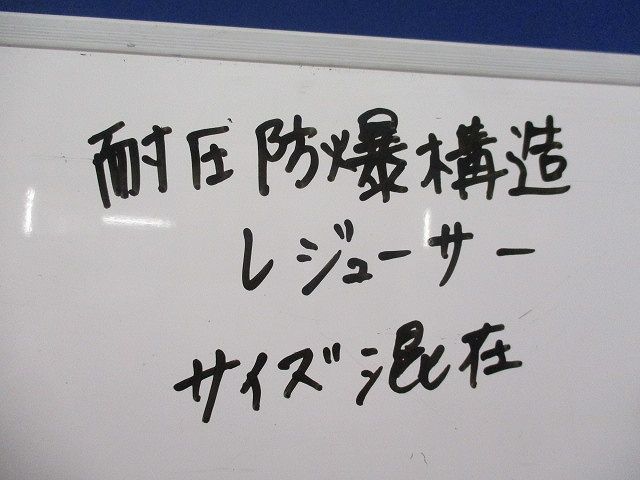 耐圧防爆構造
レジューサー
サイズ混在